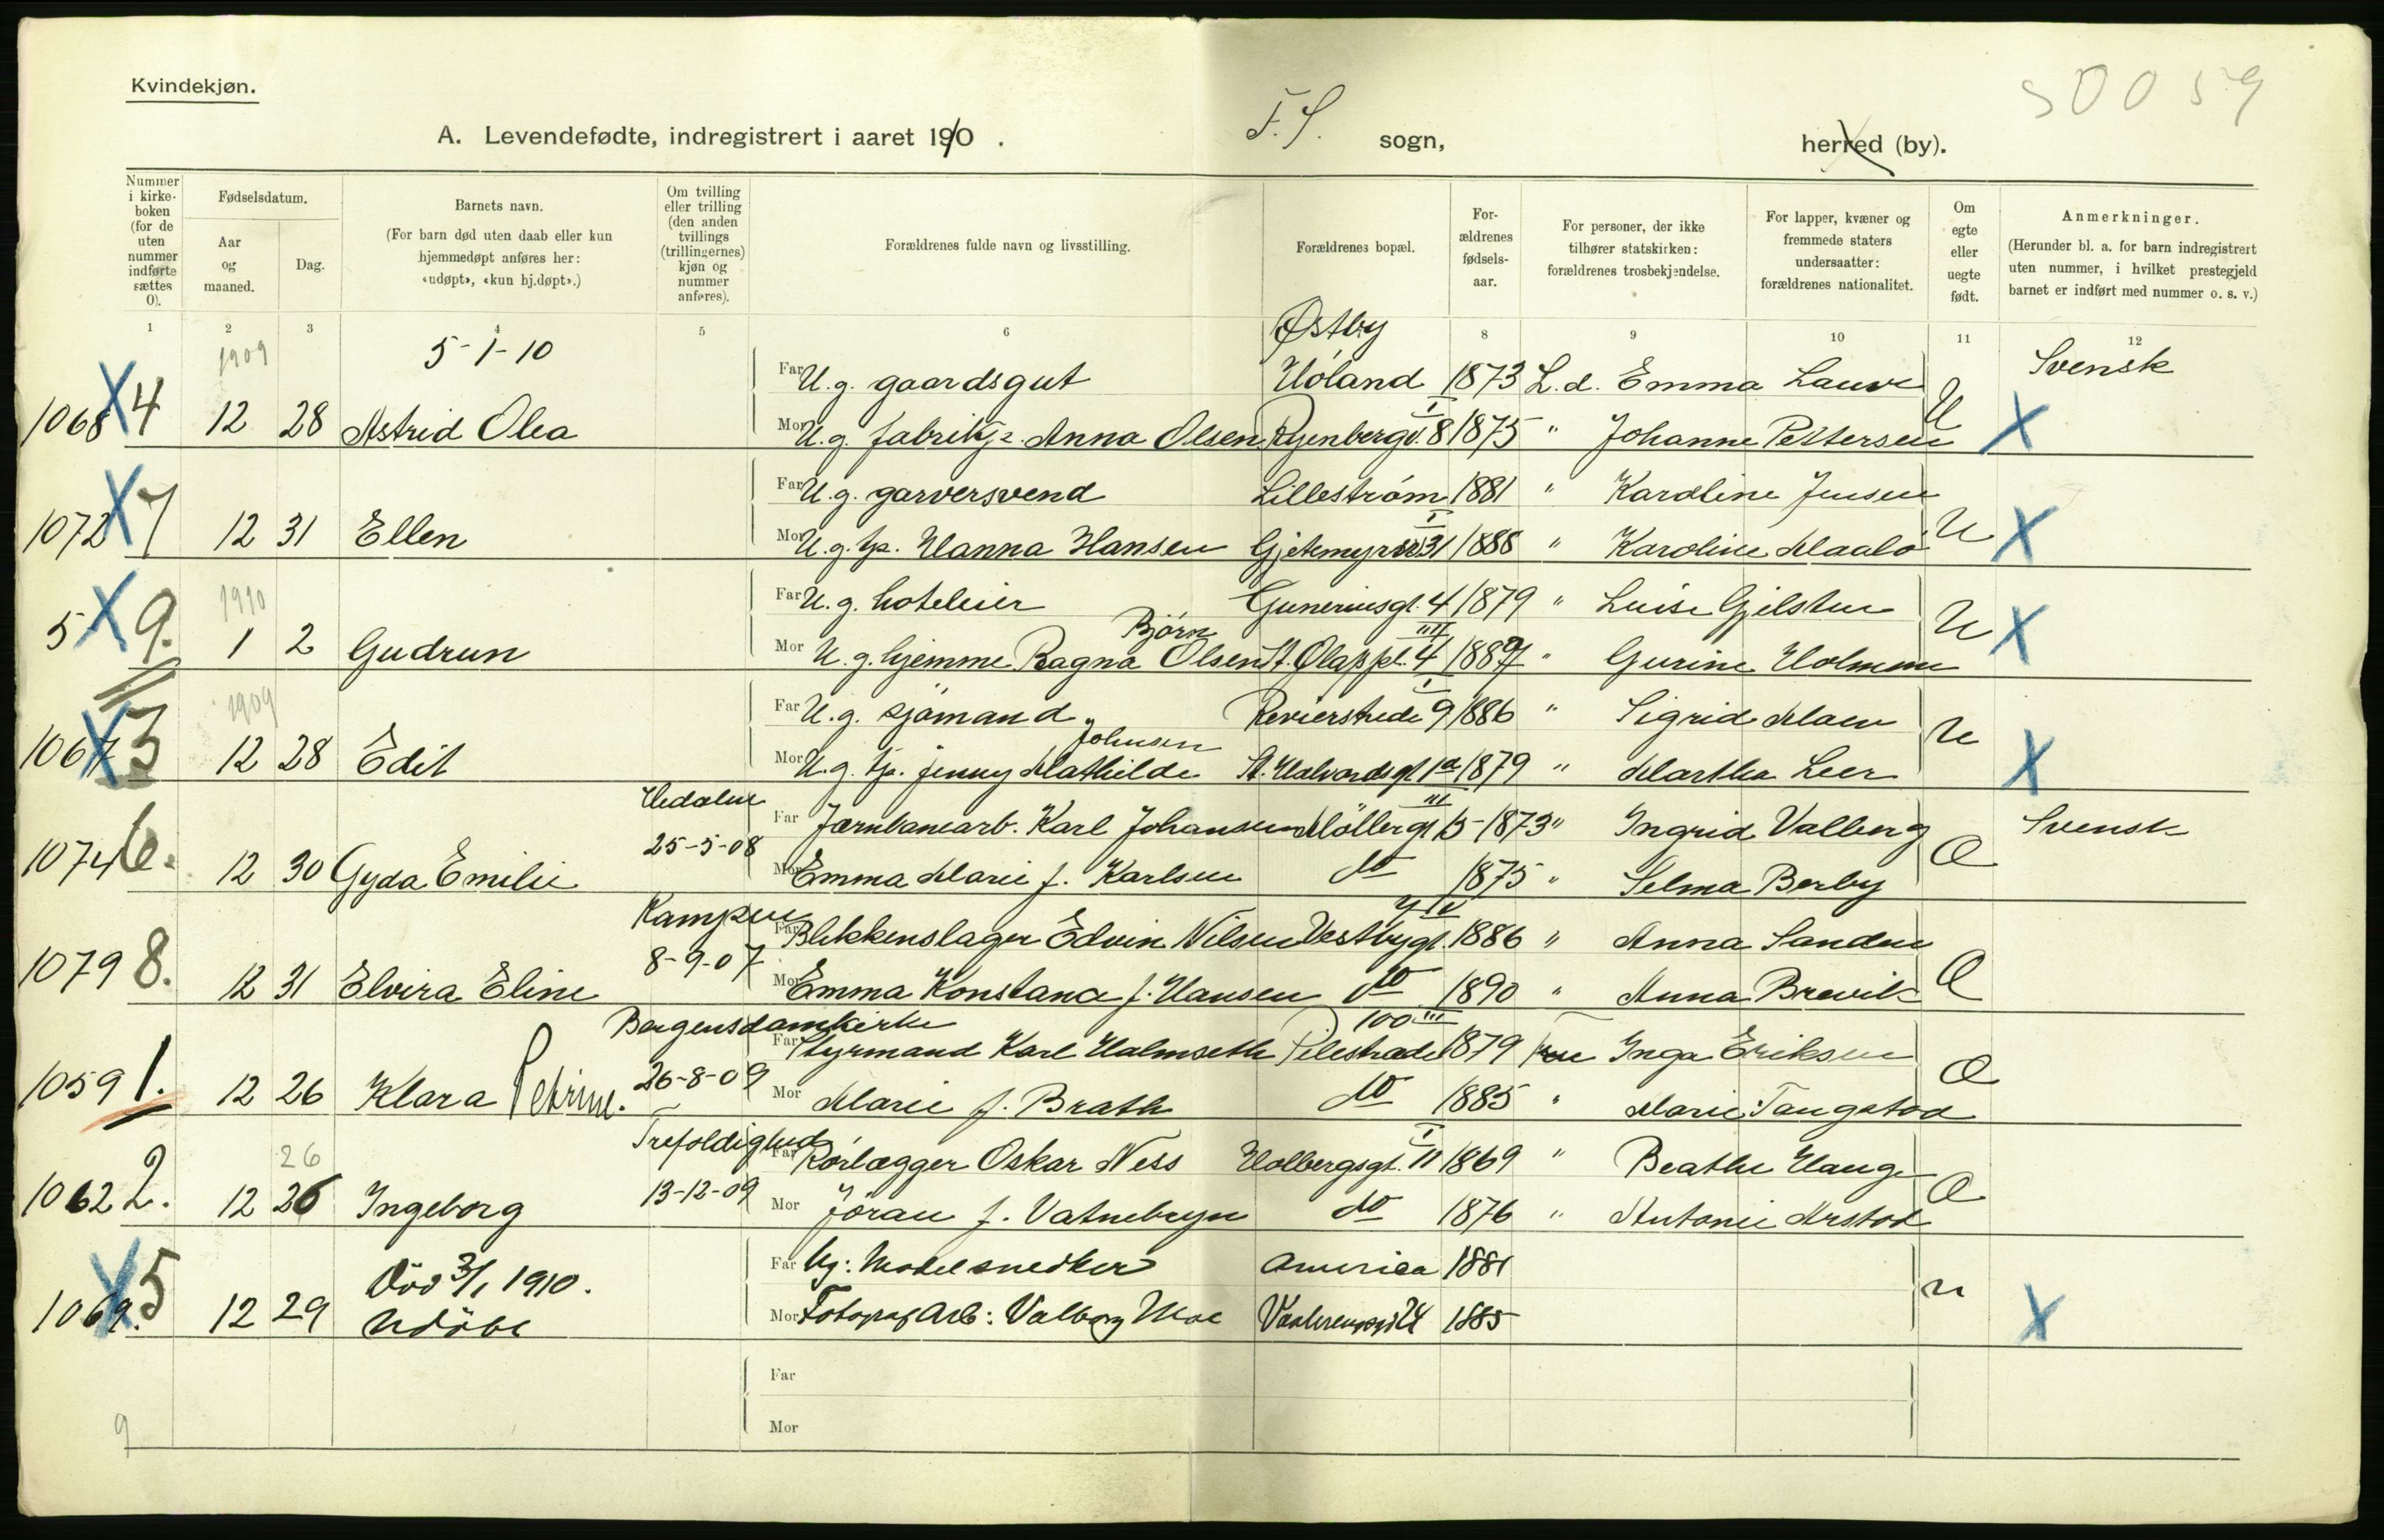 Kvindekjøn.
S0059
A. Levendefødte, indregistrert i aaret 1910 .
F. S. sogn,
herred (by).
Nummer i kirkeboken (for de uten nummer indførte sættes 0).
Fødselsdatum.
Aar og maaned.
Dag.
Barnets navn.
(For barn død uten daab eller kun hjemmedøpt anføres her: «udøpt», «kun hj.døpt».)
Om tvilling eller trilling (den anden tvillings (trillingernes) kjøn og nummer anføres).
Forældrenes fulde navn og livsstilling.
Forældrenes bopæl.
Forældrenes fødselsaar.
For personer, der ikke tilhører statskirken: forældrenes trosbekjendelse.
For lapper, kvæner og fremmede staters undersaatter: forældrenes nationalitet.
Om egte eller uegte født.
Anmerkninger.
(Herunder bl. a. for barn indregistrert uten nummer, i hvilket prestegjeld barnet er indført med nummer o. s. v.)
1 2 3 4 5 6 8 9 10 11 12
1909 5-1-10 Østby
Far U. g. gaardsgut Höland 1873 L.d. Emma Lauve Svensk
1068 X 4 12 28 Astrid Olea Mor U. g. fabrikj. Anna Olsen Ryenbergv. 8 I 1875 " Johanne Pettersen U X
Far U. g. garversvend Lilleström 1881 " Karoline Jensen
1072 X 7 12 31 Ellen Mor U. g. tj. Hanna Hansen Gjetemyrsv 31 I 1888 " Karoline Maalö U X
1910 Far U. g. hoteleier Guneriusgt. 4 1879 " Luise Gjelsten
Björn
5 X 9. 1 2 Gudrun Mor U. g. hjemme Ragna Olsen St. Olaspl. 4 III 1887 " Gurine Holmen U X
1909 Far U. g. sjömand Revierstrede 9 1886 " Sigrid Moen
Johnsen
1067 X 3 12 28 Edit Mor U. g. tj. Jenny Mathilde St. Halvardsgt 1a I 1879 " Martha Leer U X
Hedalen
25-5-08 Far Jærnbanearb. Karl Johansen Möllergt 15 III 1873 " Ingrid Valberg Svensk
1074 6. 12 30 Gyda Emilie Mor Emma Marie f. Karlsen do 1875 " Selma Berby E
Kampen
8-9-07 Far Blikkenslager Edvin Nilsen Vestbygt. 1886 " Anna Sanden
1079 8. 12 31 Elvira Eline Mor Emma Konstance f. Hansen do 1890 " Anna Brevik E
Bergens domkirke
26-8-09 Far Styrmand Karl Halmseth Pilestrædet 100 III 1879 Inga Eriksen
1059 1. 12 26 Klara Petrine. Mor Marie f. Brath do 1885 " Marie Tangstad E
Trefoldighed
13-12-09 Far Rörlægger Oskar Ness Holbergsgt. 11 I 1869 " Beathe Hauge
26
1062 2. 12 26 Ingeborg Mor Jöran f. Vatnebryn do 1876 " Antonie Arstad E
Död 3/1 1910. Far Ug: Modelsnedker America 1881
1069. X 5 12 29 Udöbt Mor Fotograf Arb: Valborg Moe 24 1885 U X
Far
Mor
9